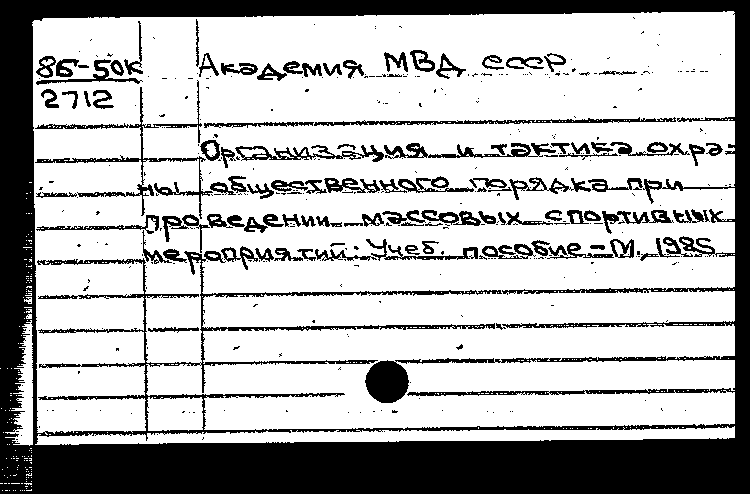 86-50к
2712
Академия МВД СССР.
Организация и тактика охра-
ны общественного порядка при
проведении массовых спортивных
мероприятий: Учеб. пособие - М., 1985